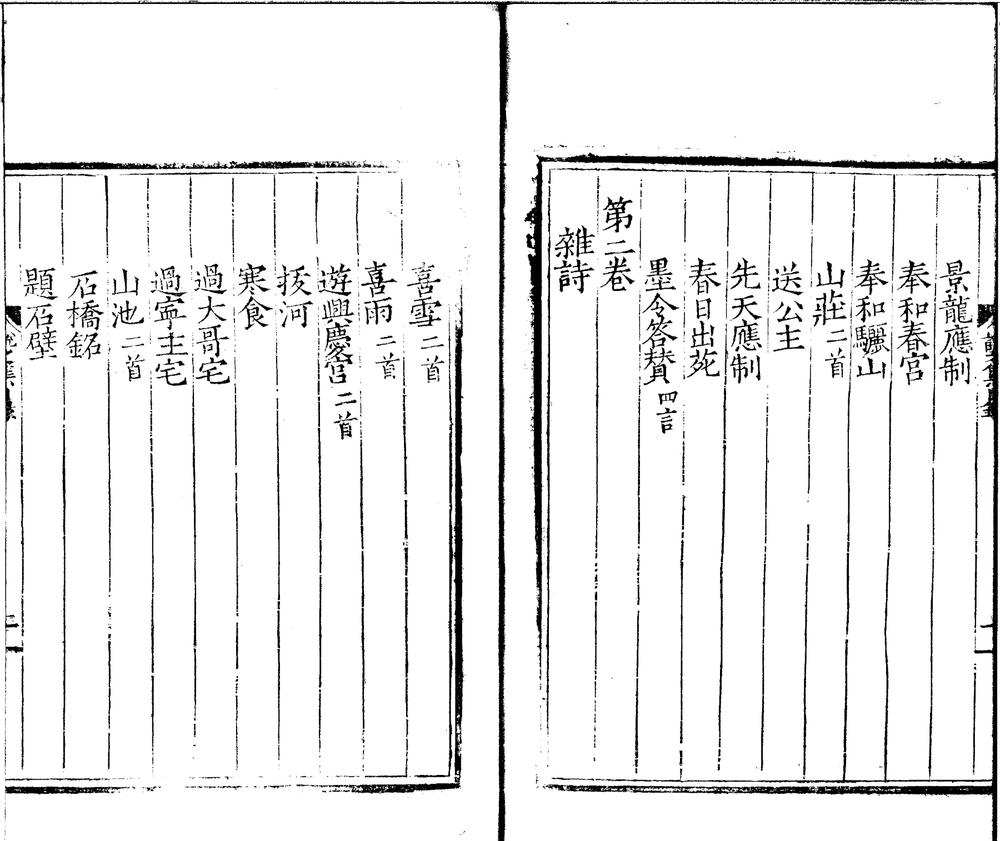 景龍應制
奉和春宮
奉和驪山
山莊二首
送公主
先天應制
春日出苑
墨令答贊四言
第二卷
雜詩
喜雪二首
喜雨二首
遊興慶宮二首
拔河
寒食
過大哥宅
過寧主宅
山池二首
石橋銘
題石壁